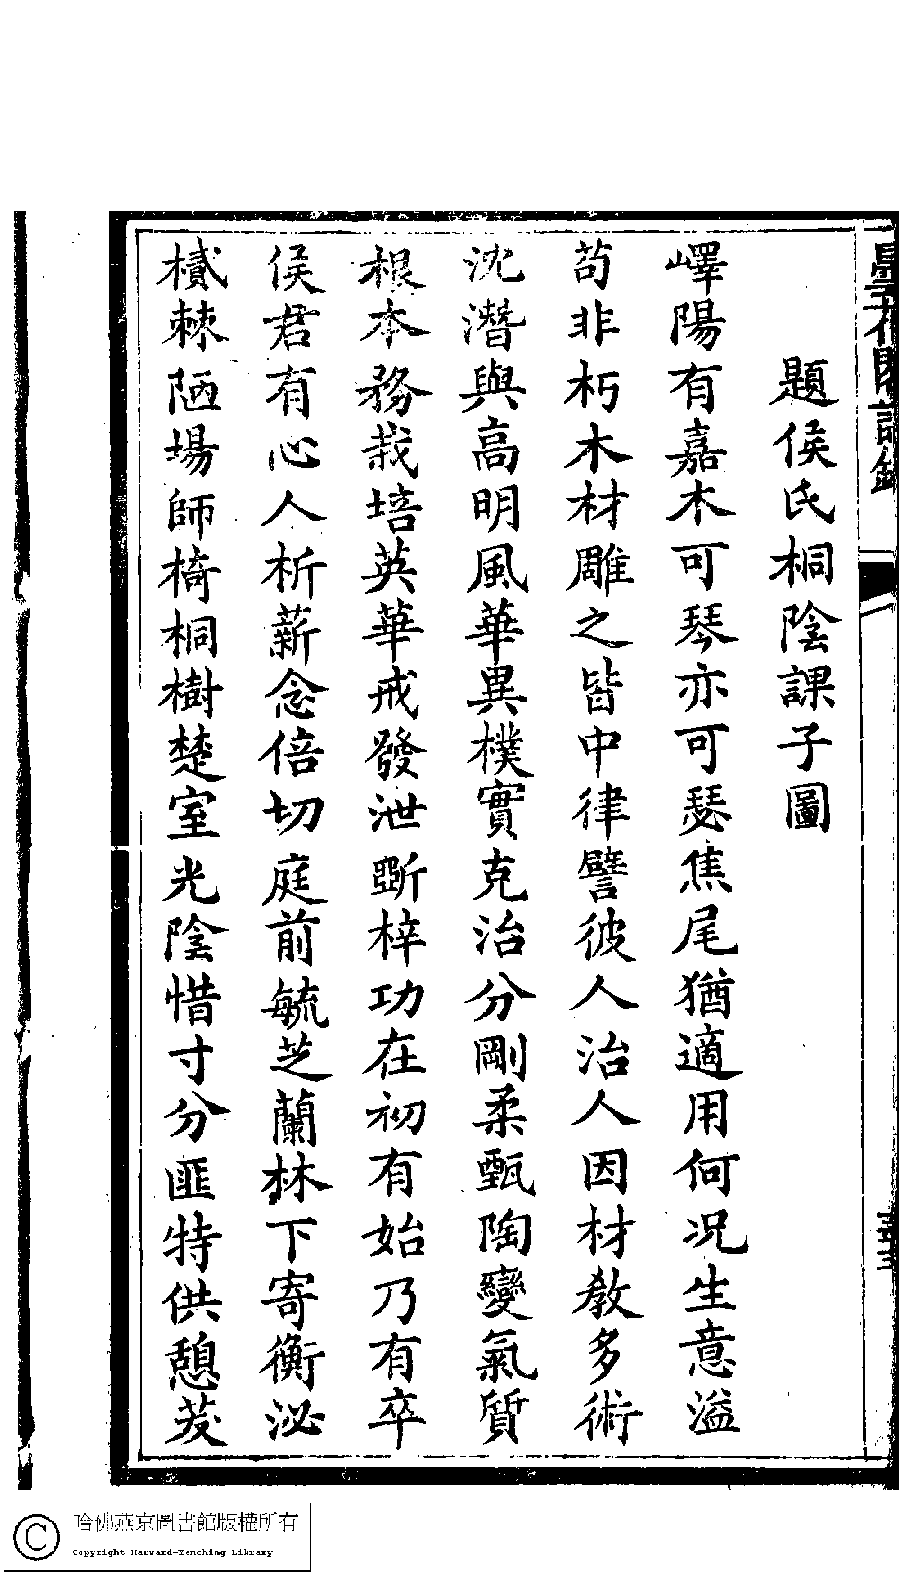 題侯氏桐陰課子圖
嶧陽有嘉木可琴亦可瑟焦尾猶適用何況生意溢
苟非朽木材雕之皆中律譬彼人治人因材教多術
沈潛與高明風華異樸實克治分剛柔甄陶變氣質
根本務栽培英華戒發泄斲梓功在初有始乃有卒
侯君有心人析薪念倍切庭前毓芝蘭林下寄衡泌
樲棘陋場師椅桐樹楚室光陰惜寸分匪特供憩茇
哈佛燕京圖書館版權所有
Copyright Harvard-Yenching Library